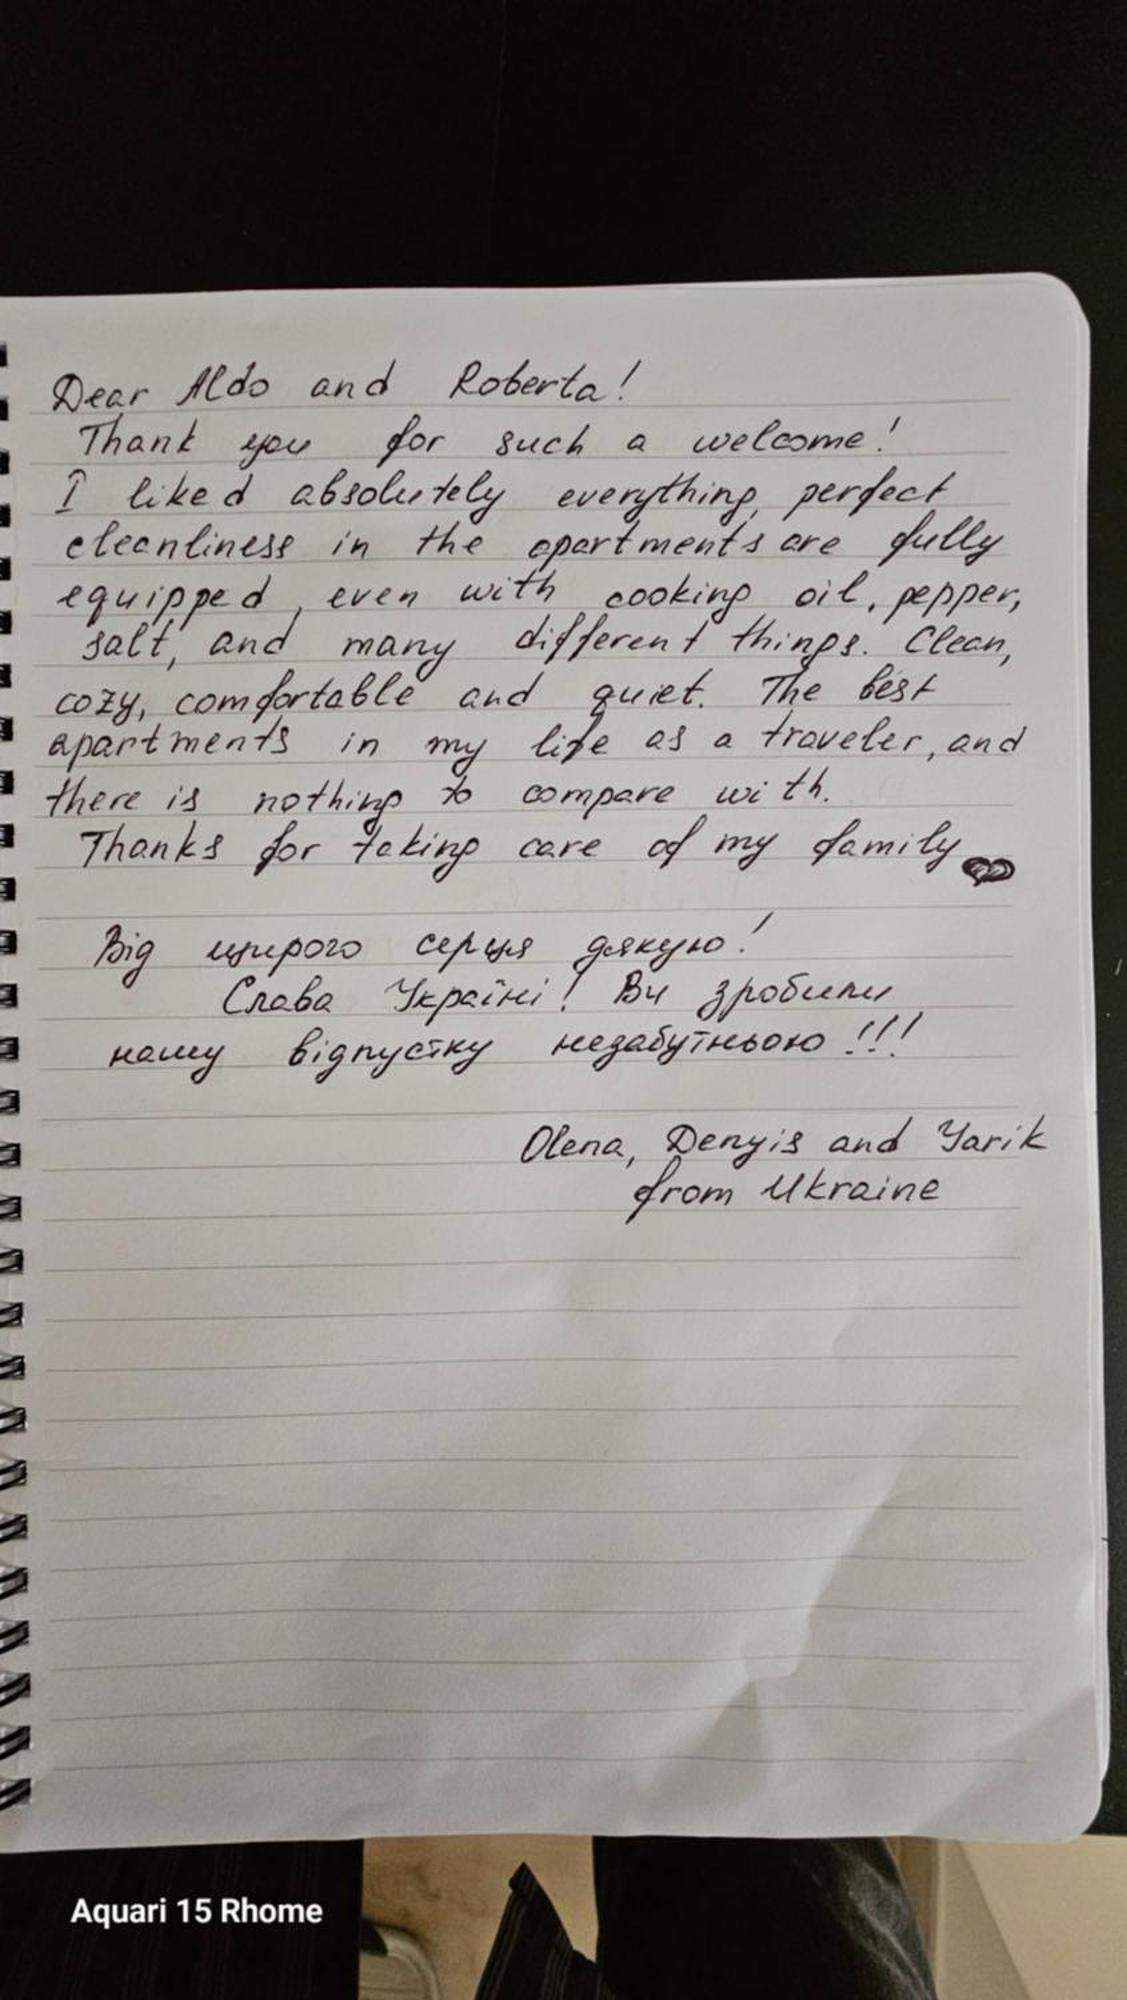 Dear Aldo and Roberta!
Thank you for such a welcome!
I liked absolutely everything, perfect
cleanliness in the apartments are fully
equipped, even with cooking oil, pepper,
salt, and many different things. Clean,
cozy, comfortable and quiet. The best
apartments in my life as a traveler, and
there is nothing to compare with.
Thanks for taking care of my family
Від щирого серця дякую!
Слава Україні! Ви зробили
нашу відпустку незабутньою!!!
Olena, Denyis and Yarik
from Ukraine
Aquari 15 Rhome